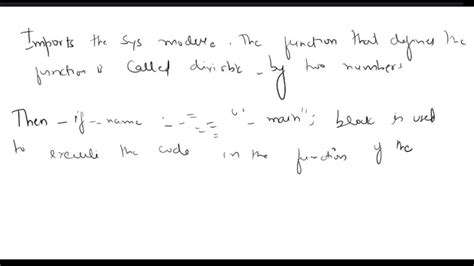 Imports the sys module. The function that defines the
function is called divisible - by two numbers
Then - if - name : - - = = "- main"; bloak is used
to execute the code in the function if the